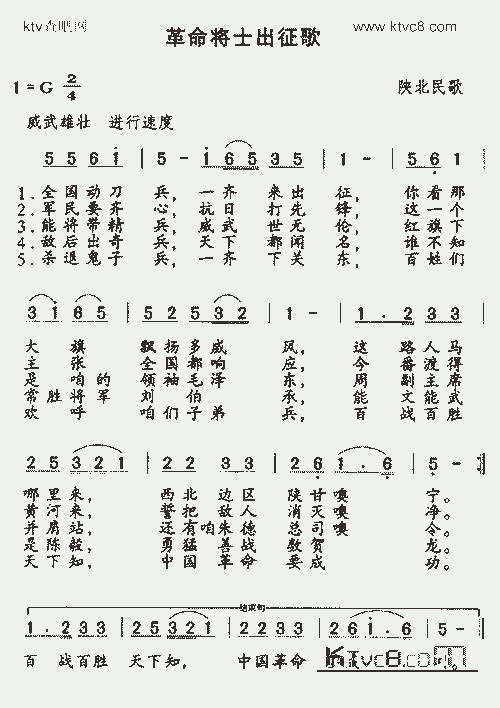 ktv酷吧网 www.ktvc8.com
革命将士出征歌
1=G 2/4 陕北民歌
威武雄壮 进行速度
5 5 6 1 | 5 - 1 6 5 3 5 | 1 - | 5 6 1 |
1.全国动刀 兵，一齐 来出 征，你看那
2.军民要齐 心，抗日 打先 锋，这一个
3.能将带精 兵，威武 世无 伦，红旗下
4.敌后出奇 兵，天下 都闻 名，谁不知
5.杀退鬼子 兵，一齐 下关 东，百姓们
3 1 6 5 | 5 2 5 3 2 | 1 - | 1 . 2 3 3 |
大旗 飘扬多威 风，这路人马
主张 全国都响 应，今番渡得
是咱的 领袖毛泽 东，周副主席
常胜将军 刘伯 承，能文能武
欢呼 咱们子弟 兵，百战百胜
2 5 3 2 1 | 2 2 3 3 | 2 6 1 . 6 | 5 - :|
哪里来， 西北边区 陕甘噢 宁。
黄河来， 誓把敌人 消灭噢 净。
并肩站， 还有咱朱德 总司噢 令。
是陈毅， 勇猛善战 数贺 龙。
天下知， 中国革命 要成 功。
结束句
1 . 2 3 3 | 2 5 3 2 1 | 2 2 3 3 | 2 6 1 . 6 | 5 - ‖
百战百胜 天下知， 中国革命
KTvc8.com